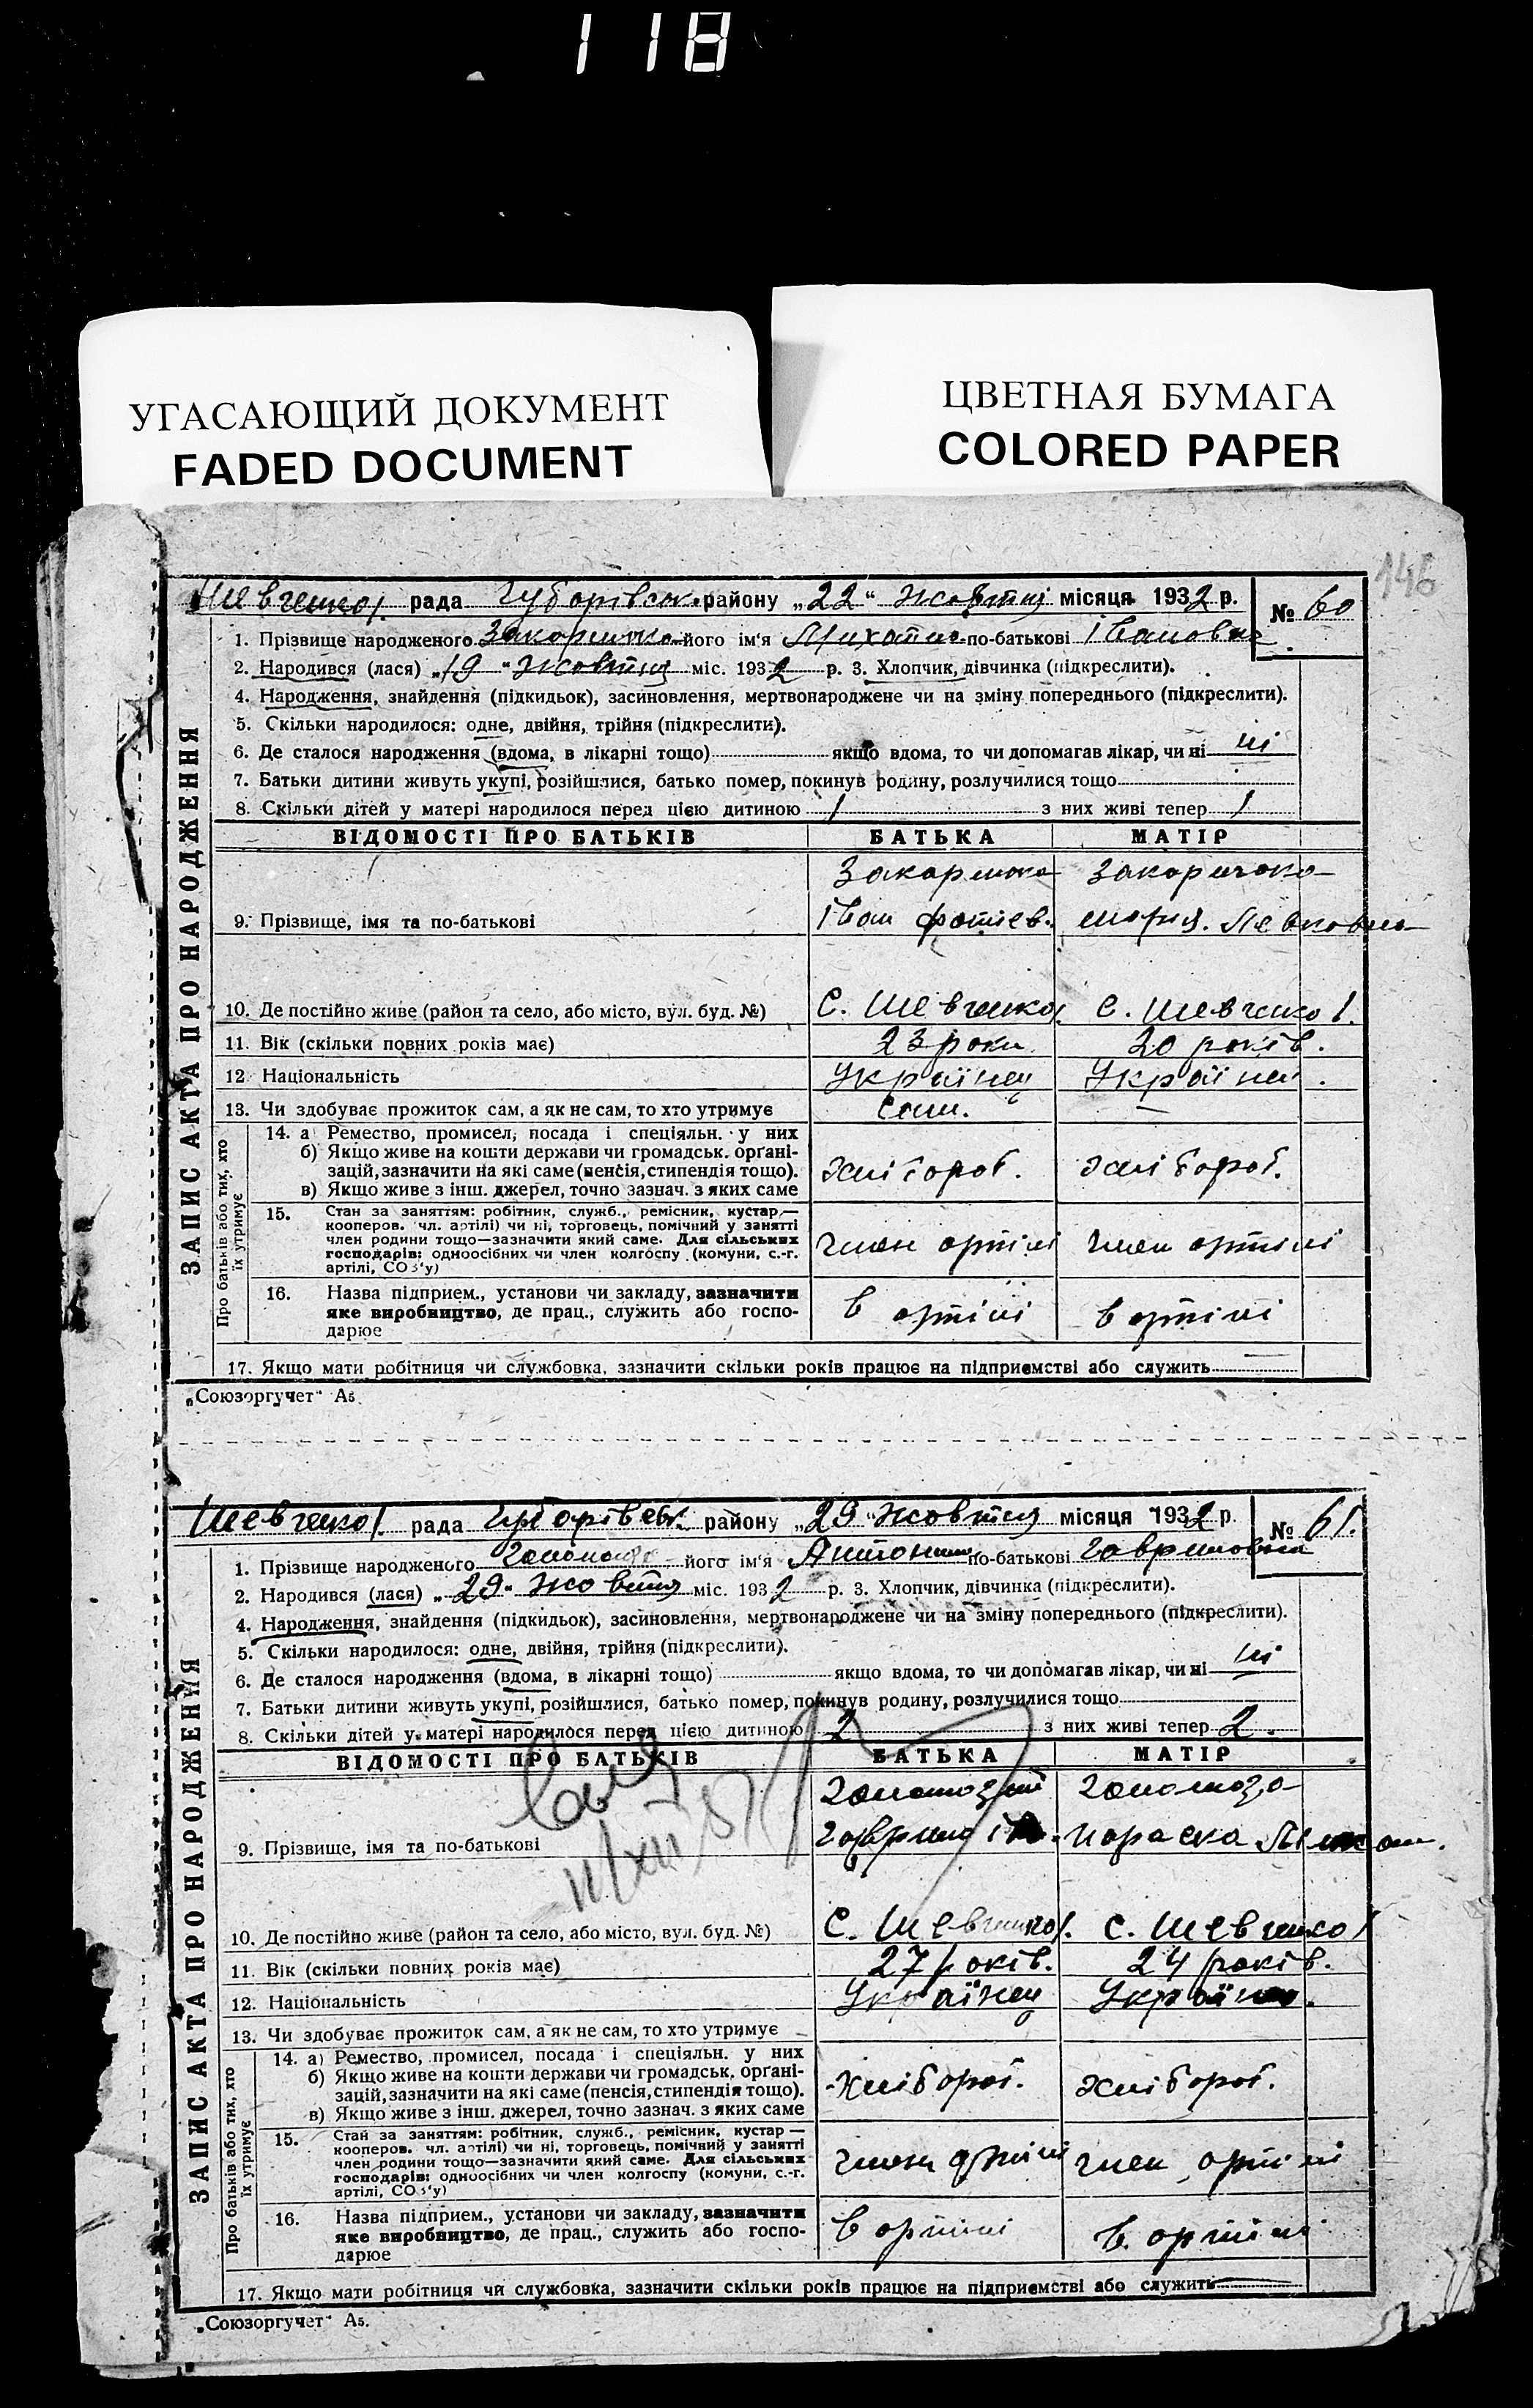 118
УГАСАЮЩИЙ ДОКУМЕНТ
FADED DOCUMENT
ЦВЕТНАЯ БУМАГА
COLORED PAPER
146
рада району „22“ жовтня місяця 1932 р. № 60
1. Прізвище народженого його ім'я по-батькові Іванович
2. Народився (лася) „19“ жовтня міс. 1932 р. 3. Хлопчик, дівчинка (підкреслити).
4. Народження, знайдення (підкидьок), засиновлення, мертвонароджене чи на зміну попереднього (підкреслити).
5. Скільки народилося: одне, двійня, трійня (підкреслити).
6. Де сталося народження (вдома, в лікарні тощо) якщо вдома, то чи допомагав лікар, чи ні ні
7. Батьки дитини живуть укупі, розійшлися, батько помер, покинув родину, розлучилися тощо
8. Скільки дітей у матері народилося перед цією дитиною 1 з них живі тепер 1
ЗАПИС АКТА ПРО НАРОДЖЕННЯ
ВІДОМОСТІ ПРО БАТЬКІВ БАТЬКА МАТІР
9. Прізвище, імя та по-батькові
Іван Фотіев. Марія. Левковна
10. Де постійно живе (район та село, або місто, вул. буд. №) С. Шевченко С. Шевченко
11. Вік (скільки повних років має) 23 роки 20 років.
12 Національність Українец Україн.
13. Чи здобуває прожиток сам, а як не сам, то хто утримує сам. —
Про батьків або тих, хто їх утримує
14. а Ремество, промисел, посада і спеціяльн. у них
б) Якщо живе на кошти держави чи громадськ. орґані-
зацій, зазначити на які саме (пенсія, стипендія тощо). хлібороб. хлібороб.
в) Якщо живе з інш. джерел, точно зазнач. з яких саме
15. Стан за заняттям: робітник, служб., ремісник, кустар —
кооперов. чл. артілі) чи ні, торговець, помічний у занятті
член родини тощо—зазначити який саме. Для сільських
господарів: одноосібних чи член колгоспу (комуни, с.-г. член артілі член артілі
артілі, СОЗ'у)
16. Назва підприєм., установи чи закладу, зазначити
яке виробництво, де прац., служить або госпо- в артілі в артілі
дарює
17. Якщо мати робітниця чи службовка, зазначити скільки років працює на підприємстві або служить —
„Союзоргучет“ А5.
рада району „29“ жовтня місяця 1932 р. № 61.
1. Прізвище народженого його ім'я Антонина по-батькові Гавриловна
2. Народився (лася) „29“ жовтня міс. 1932 р. 3. Хлопчик, дівчинка (підкреслити).
4. Народження, знайдення (підкидьок), засиновлення, мертвонароджене чи на зміну попереднього (підкреслити).
5. Скільки народилося: одне, двійня, трійня (підкреслити).
6. Де сталося народження (вдома, в лікарні тощо) якщо вдома, то чи допомагав лікар, чи ні ні
7. Батьки дитини живуть укупі, розійшлися, батько помер, покинув родину, розлучилися тощо
8. Скільки дітей у матері народилося перед цією дитиною 2 з них живі тепер 2.
ЗАПИС АКТА ПРО НАРОДЖЕННЯ
ВІДОМОСТІ ПРО БАТЬКІВ БАТЬКА МАТІР
9. Прізвище, імя та по-батькові Гаврило Параска
10. Де постійно живе (район та село, або місто, вул. буд. №) С. Шевченко С. Шевченко
11. Вік (скільки повних років має) 27 років. 24 років.
12. Національність Українец Україн.
13. Чи здобуває прожиток сам, а як не сам, то хто утримує
Про батьків або тих, хто їх утримує
14. а) Ремество, промисел, посада і спеціяльн. у них
б) Якщо живе на кошти держави чи громадськ. орґані-
зацій, зазначити на які саме (пенсія, стипендія тощо). хлібороб. хлібороб.
в) Якщо живе з інш. джерел, точно зазнач. з яких саме
15. Стан за заняттям: робітник, служб., ремісник, кустар —
кооперов. чл. артілі) чи ні, торговець, помічний у занятті
член родини тощо—зазначити який саме. Для сільських
господарів: одноосібних чи член колгоспу (комуни, с.-г. член артілі член артілі
артілі, СОЗ'у)
16. Назва підприєм., установи чи закладу, зазначити
яке виробництво, де прац., служить або госпо- в артілі в артілі
дарює
17. Якщо мати робітниця чи службовка, зазначити скільки років працює на підприємстві або служить —
„Союзоргучет“ А5.